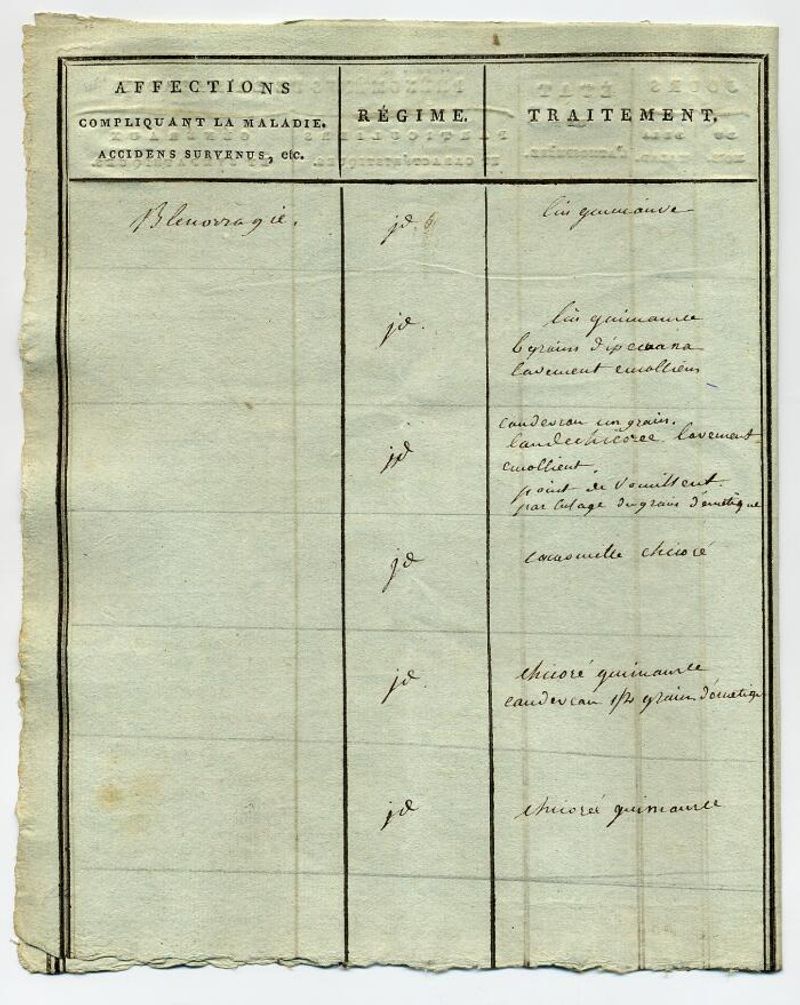 AFFECTIONS
COMPLIQUANT LA MALADIE,
ACCIDENS SURVENUS, etc.
RÉGIME.
TRAITEMENT.
Blenorragie.
jd.
lin guimauve
jd.
lin guimauve
6 grains d'ipecuana
lavement emolliens
jd
un grain.
chicorée lavement
emollient.
point de vomissent.
par lusage du grain d'émetique
jd
chicoré
jd.
chicoré guimauve
1/2 grain d'émetiq
jd
chicoreé guimauve